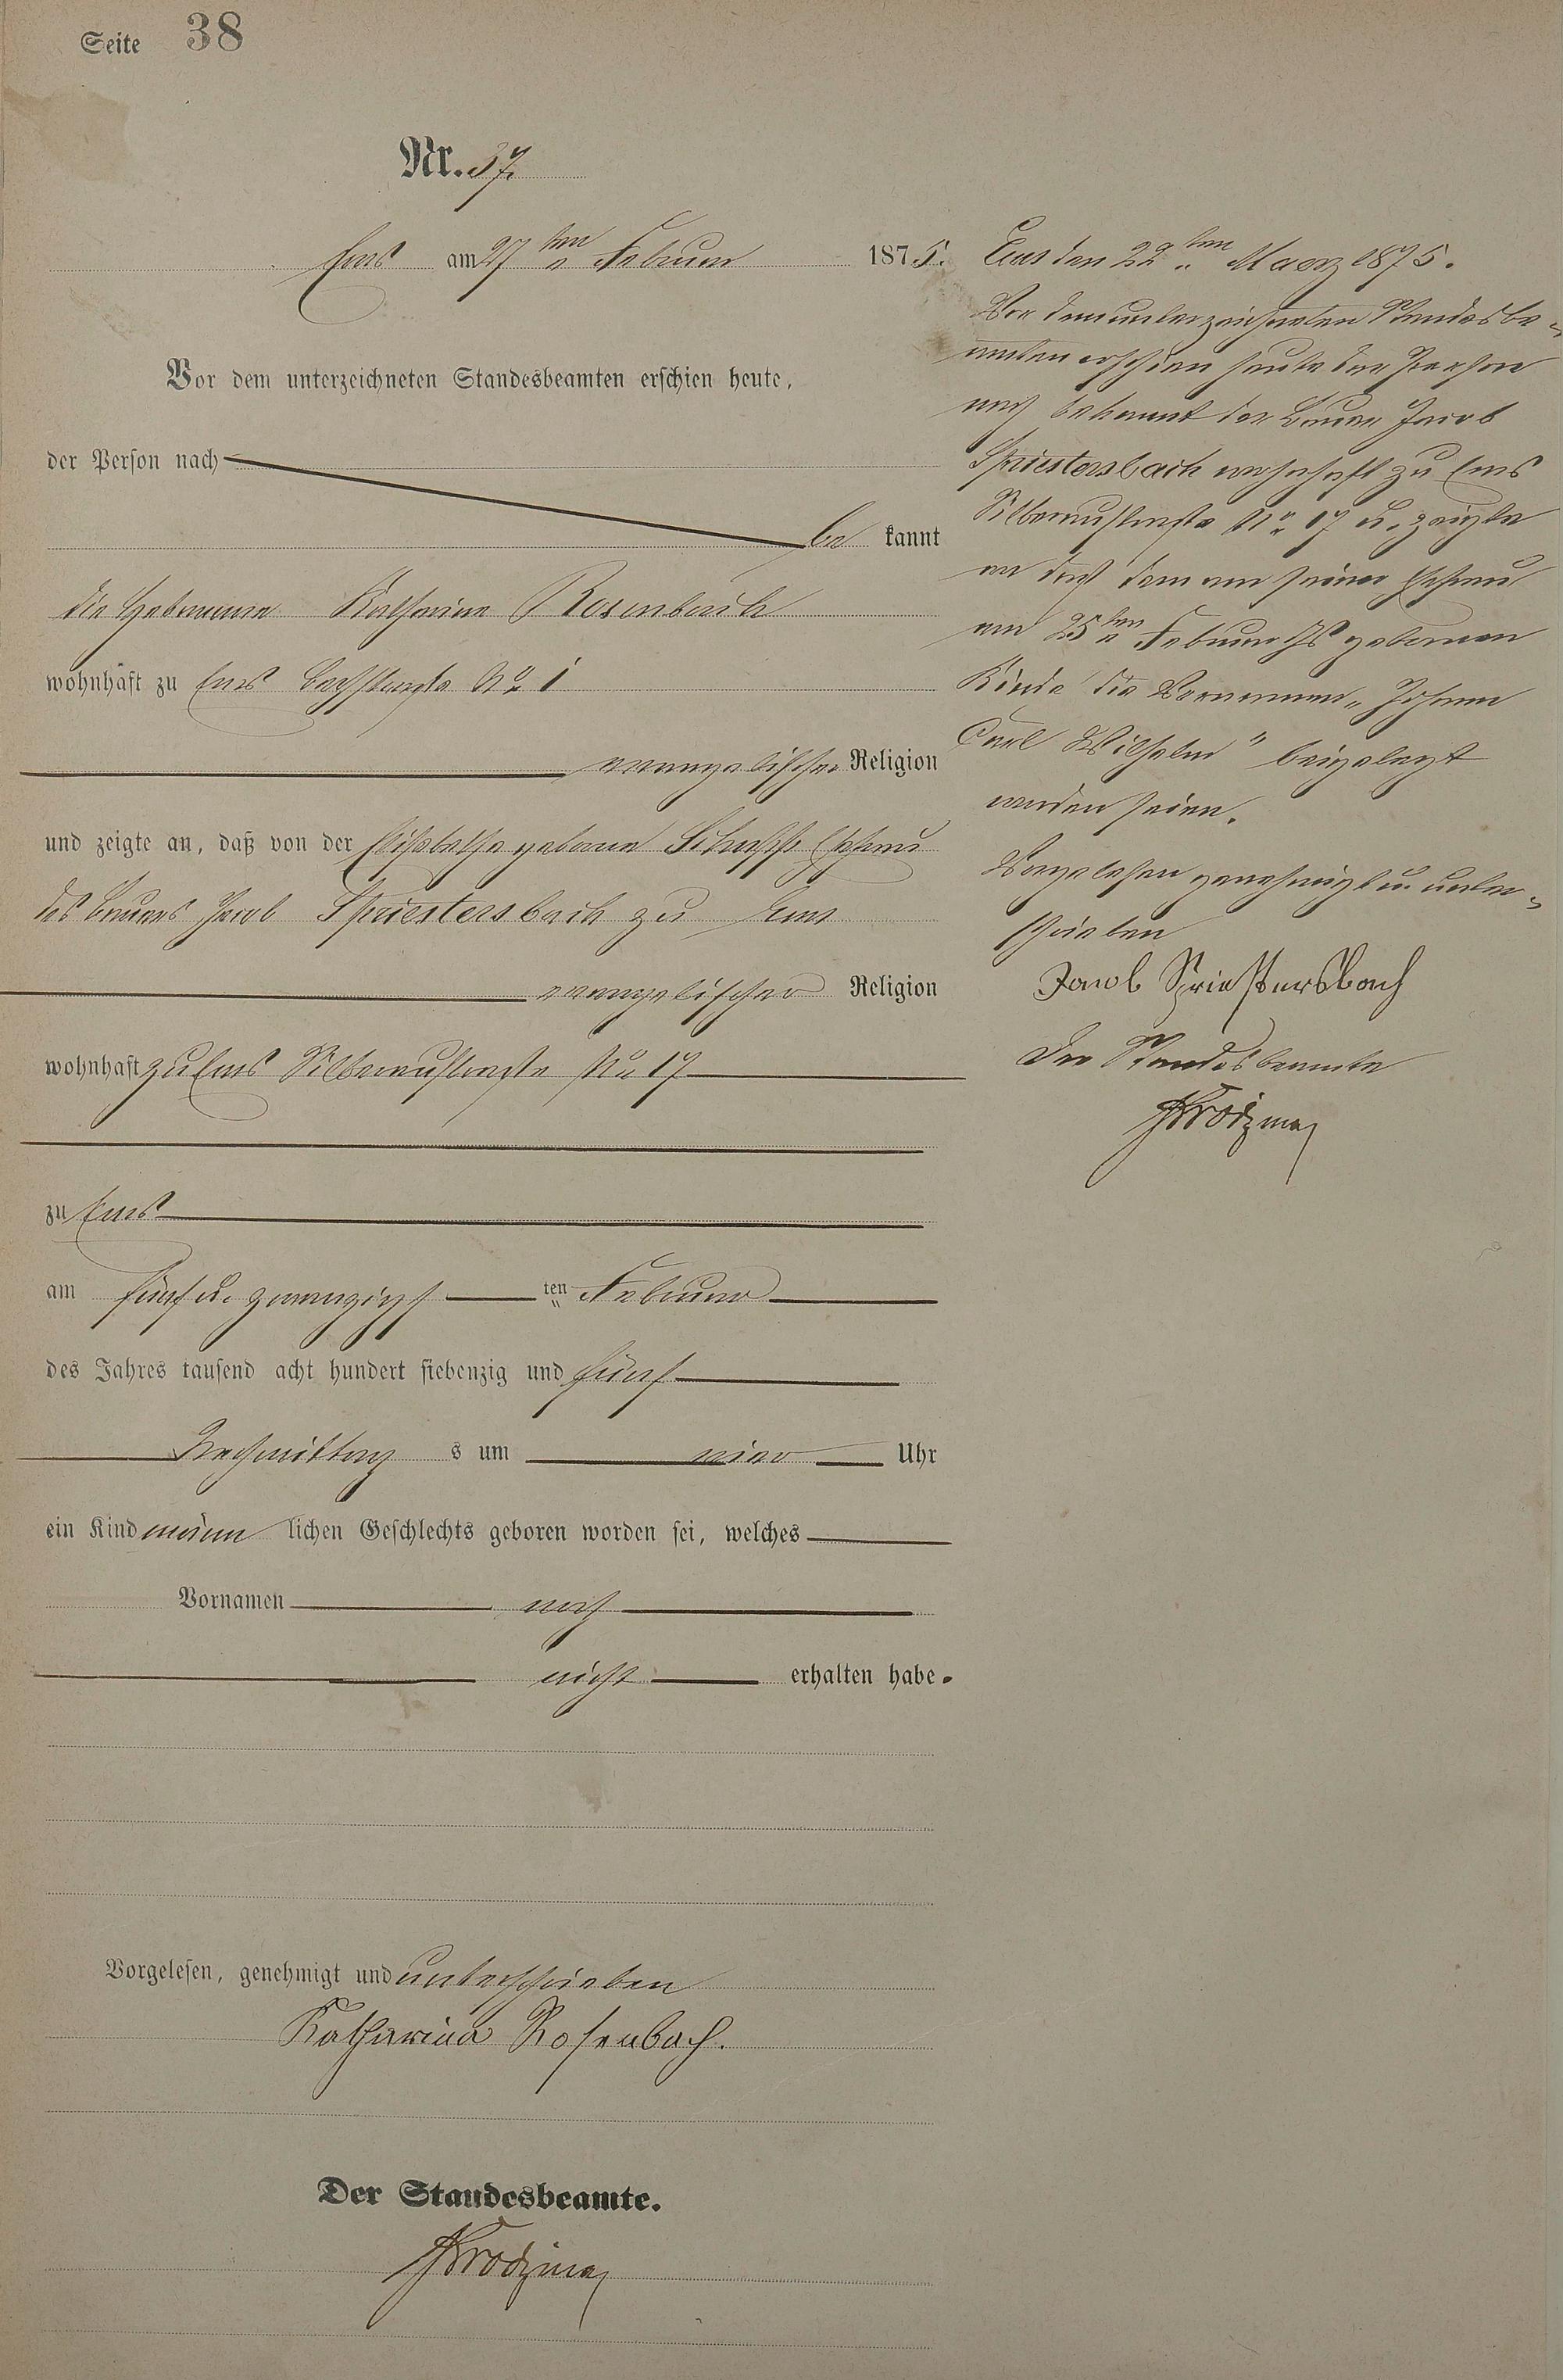 Seite 38
Nr. 37.
Ems am 27ten Februar 1875.
Vor dem unterzeichneten Standesbeamten erschien heute,
der Person nach
be kannt
die Hebamme Katharina Rosenbach
wohnhaft zu Ems Bachstraße No 1
evangelischer Religion
und zeigte an, daß von der Elisabetha geborne Ehefrau
des Bauers Jacob Spriestersbach zu Ems
evangelischer Religion
wohnhaft zu Ems Silberaustraße No 17
zu Ems
am fünf u. zwanzigsten Februar
des Jahres tausend acht hundert siebenzig und fünf
Nachmittags um vier Uhr
ein Kind männlichen Geschlechts geboren worden sei, welches
Vornamen noch
nicht erhalten habe.
Vorgelesen, genehmigt und unterschrieben
Katharina Rosenbach.
Der Standesbeamte.
Ems den 22ten Maerz 1875.
Vor dem unterzeichneten Standesbe-
amten erschien heute der Person
nach bekannt der Bauer Jacob
Spriestersbach wohnhaft zu Ems
Silberaustraße No 17 u. zeigte
an daß dem von seiner Ehefrau
am 25ten Februar geborenen
Kinde die Vornamen „Johann
Carl Wilhelm" beigelegt
worden seien.
Vorgelesen genehmigt u. unter-
schrieben
Jacob Spriestersbach
Der Standesbeamte